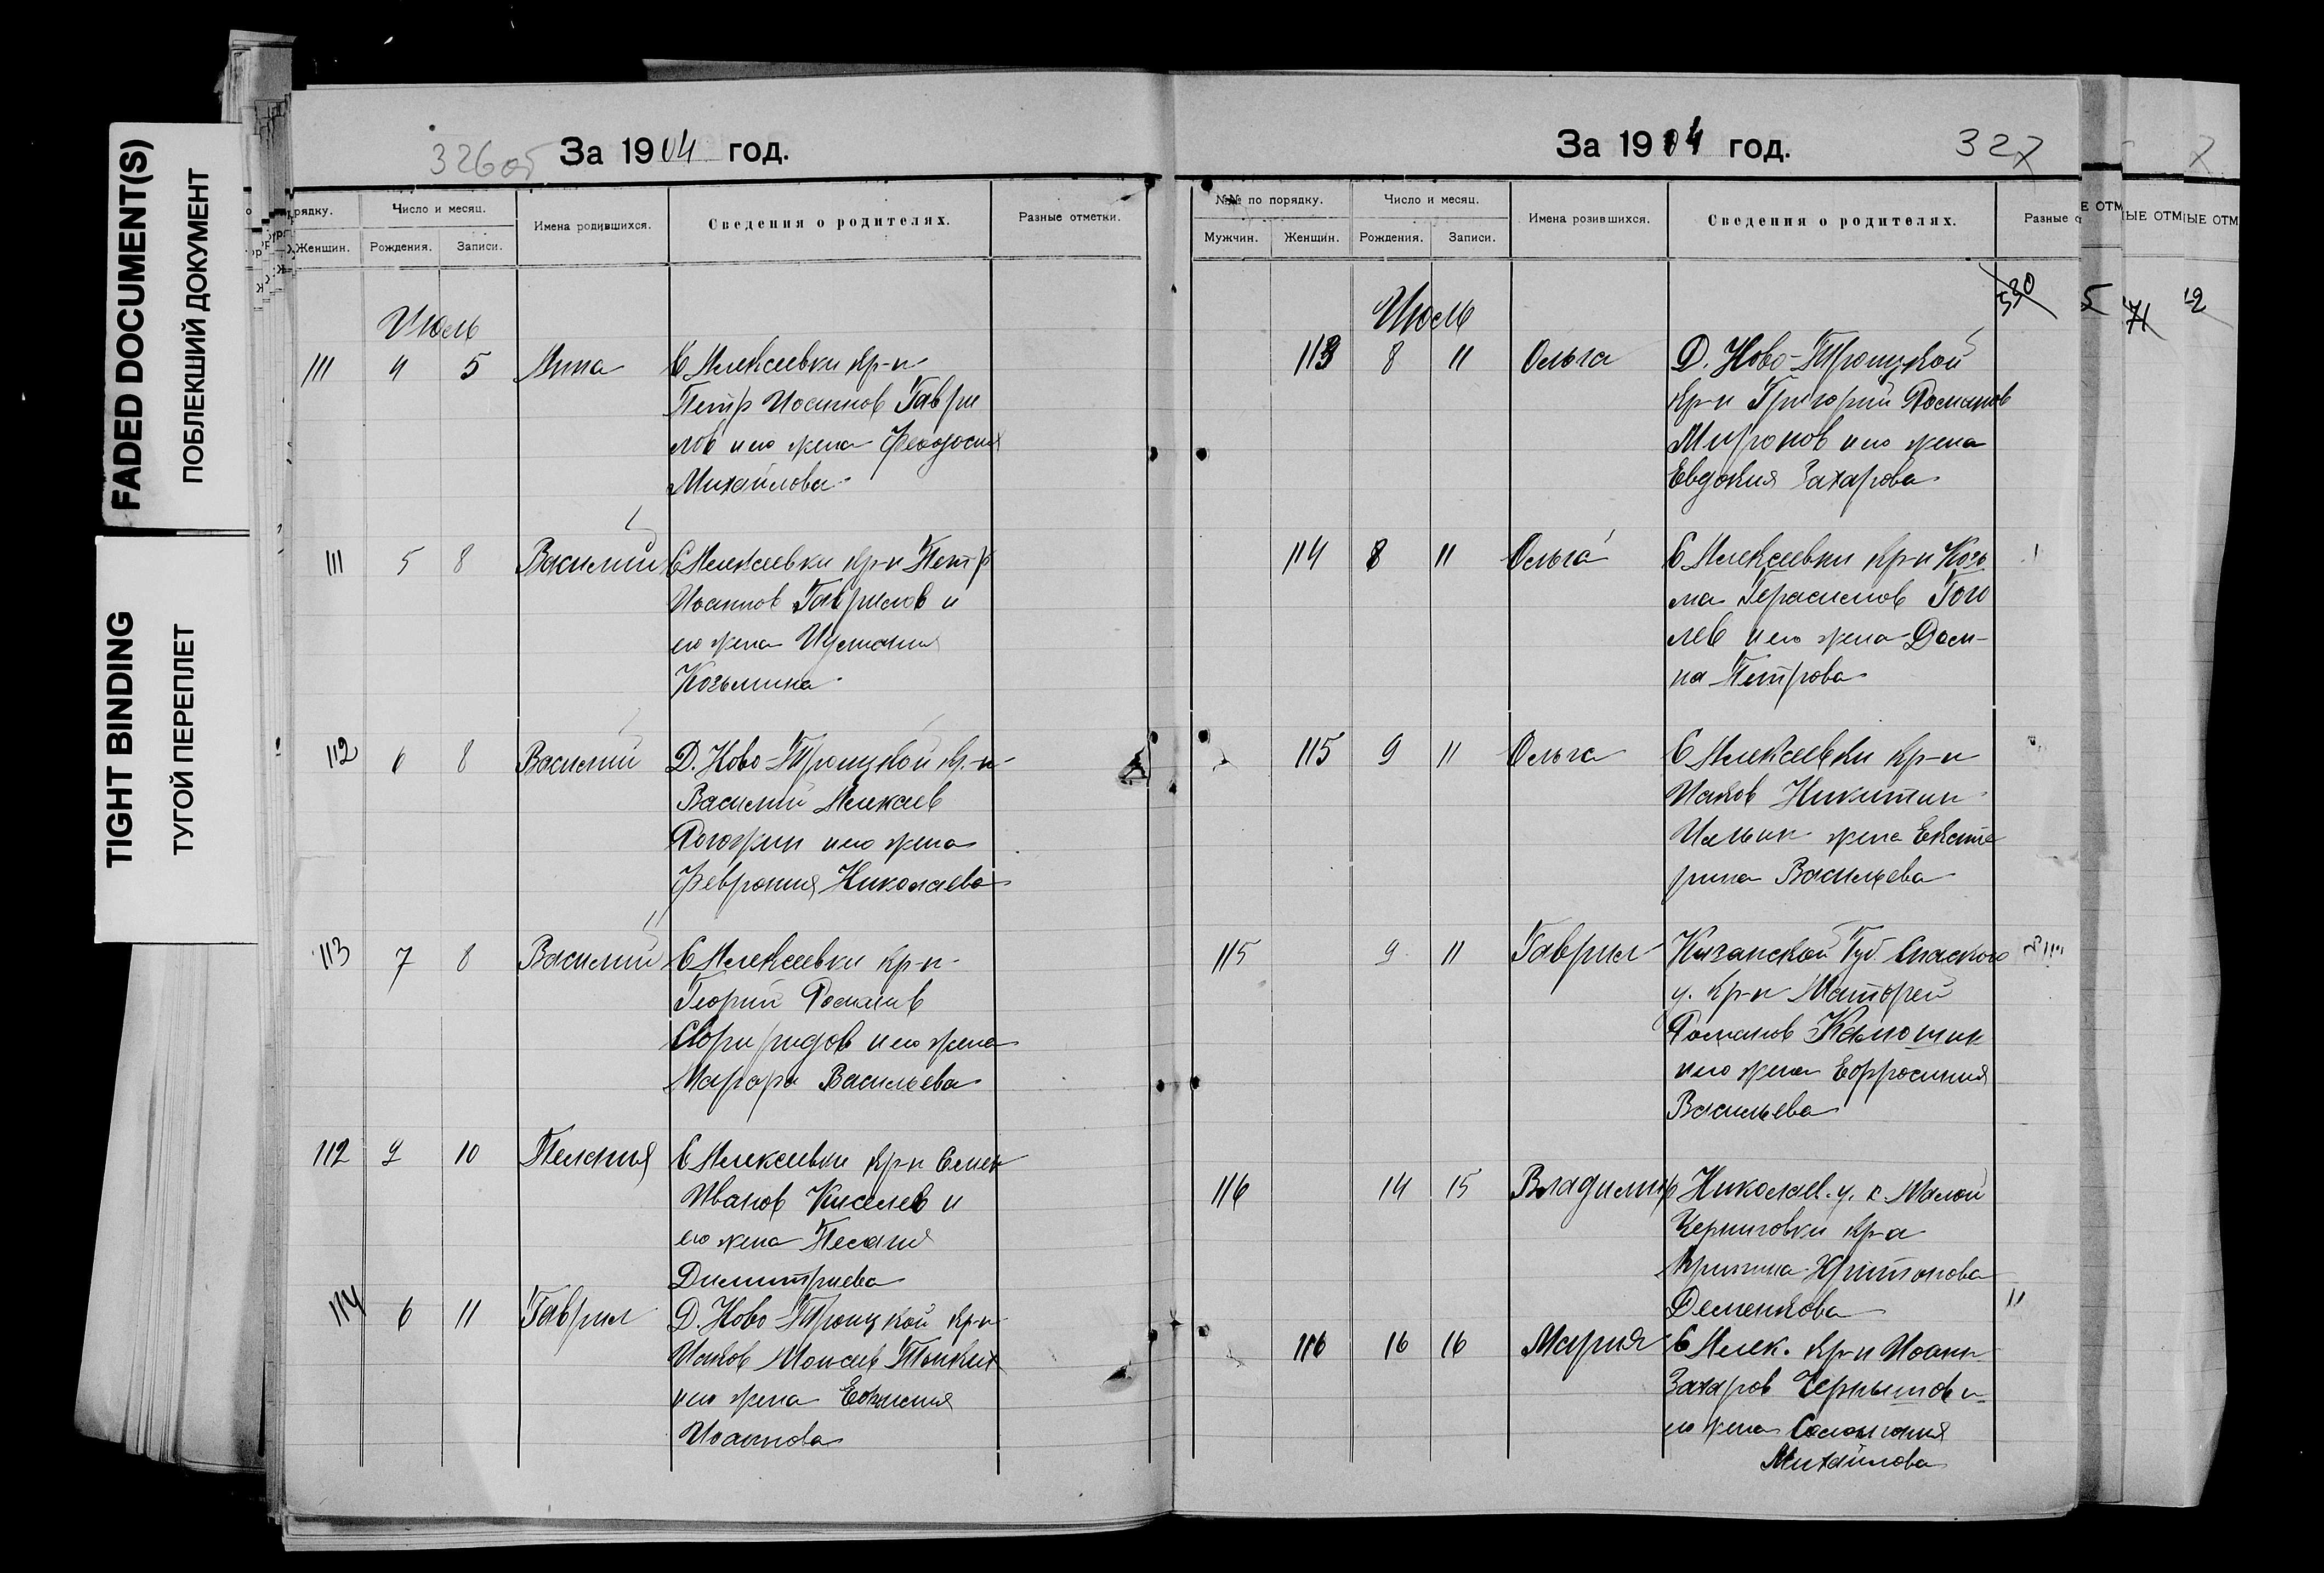 FADED DOCUMENT(S)
ПОБЛЕКШИЙ ДОКУМЕНТ
TIGHT BINDING
ТУГОЙ ПЕРЕПЛЕТ
326об
За 1904 год.
рядку.
Число и месяц.
Имена родившихся.
Сведения о родителях.
Разные отметки.
Женщин.
Рождения.
Записи.
Июль
111 4 5 Анна С Алексеевки кр-н
Петр Иоаннов Гаври
лов и его жена Феодосия
Михайлова
111 5 8 Василий С Алексеевки кр-н Петр
Иоаннов Гаврилов и
его жена Иустиния
Козьмина
112 6 8 Василий Д. Ново-Троицкой кр-н
Василий Алексеев
Рогожин и его жена
Феврония Николаева
113 7 8 Василий С Алексеевки кр-н
Георгий
Спиридов и его жена
Марфа Васильева
112 9 10 Пелагия С Алексеевки кр-н Семен
Иванов Киселев и
его жена Пелагия
Димитриева
114 6 11 Гаврил Д. Ново-Троицкой кр-н
Иаков Моисеев
и его жена Евфимия
Иоаннова
За 1904 год.
327
№№ по порядку.
Число и месяц.
Имена розившихся.
Сведения о родителях.
Разные о
Мужчин.
Женщин.
Рождения.
Записи.
Е ОТМ
ЫЕ ОТМ
ЫЕ ОТМ
330
5
71
Июль
113 8 11 Ольга Д. Ново-Троицкой
кр-н Григорий
Миронов и его жена
Евдокия Захарова
114 8 11 Ольга С Алексеевки кр-н Козь
ма Герасимов Гого
лев и его жена Дом-
на Петрова
115 9 11 Ольга С Алексеевки кр-н
Иаков Никитин
Ильин жена Екате
рина Васильева
115 9 11 Гаврил Казанской Губ. Спаского
у. кр-н Матфей
Романов
и его жена Евфросиния
Васильева
116 14 15 Владимир Николаев. у. с. Малой
Черниговки кр-а
Ирина Харитонова
Деменкова
116 16 16 Мария С Алек. кр-н Иоанн
Захаров Чернышов и
его жена Соломония
Михайлова